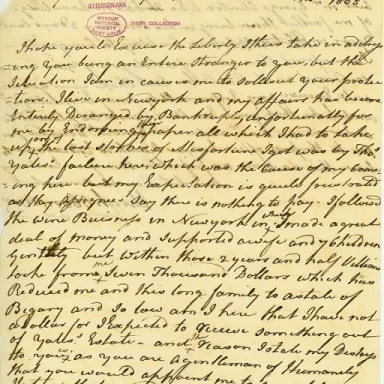 JEFFERSONIANA
MISSOURI
HISTORICAL
SOCIETY
SAINT LOUIS
BIXBY COLLECTION
1803
I hope you'd Excuse the Liberty I thus take in address
=ing you being an Entire Stranger to you, but the
Situation I am in causes me to sollicit your protec
=tion. I live in Newyork and my affairs has become
Entirely Deranged by Bankruptcy unfortunately for
me by Endorsing paper all which I had to take
up, the last of Misfortune I got was by Thos.
Yates' failure here, which was the Cause of my com
=ing here but my Expectation is quite frustrated
as the say there is nothing to pay. I followed
the wine Buisness in Newyork in which I made a great
deal of money and Supported a wife and 7 Children
Genteely but within those 2 years and half Villians
took from me Seven Thousand Dollars which has
Reduced me and this long family to a State of
Begary and So low am I here that I have not
a dollar for I Expected to receive Something out
of Yates' Estate - and the Reason I state my Distress
to you is as you are a Gentleman of Humanity
that you would appoint me to